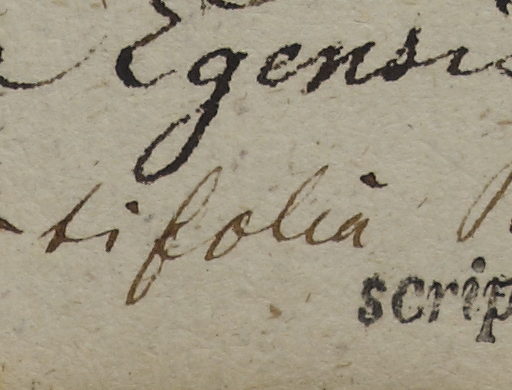 Egensi
tifolia
scrip